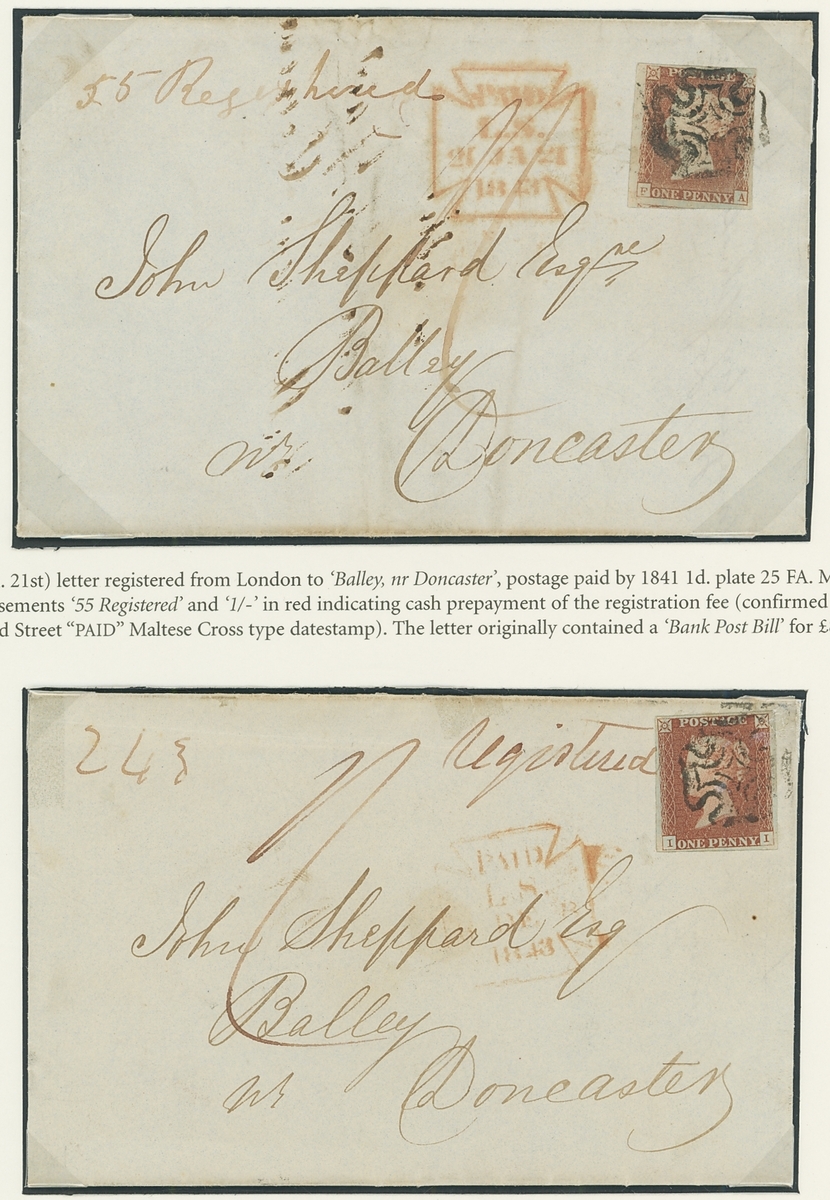 55 Registered
PAID
L.S.
21 JA 21
1843
1/-
POSTAGE
F ONE PENNY A
John Sheppard Esqre
Balley
nr Doncaster
. 21st) letter registered from London to ‘Balley, nr Doncaster’, postage paid by 1841 1d. plate 25 FA. M
sements ‘55 Registered’ and ‘1/-’ in red indicating cash prepayment of the registration fee (confirmed
d Street “PAID” Maltese Cross type datestamp). The letter originally contained a ‘Bank Post Bill’ for £
243
1/-
Registered
POSTAGE
I ONE PENNY I
PAID
L.S.
1843
John Sheppard Esq
Balley
nr Doncaster